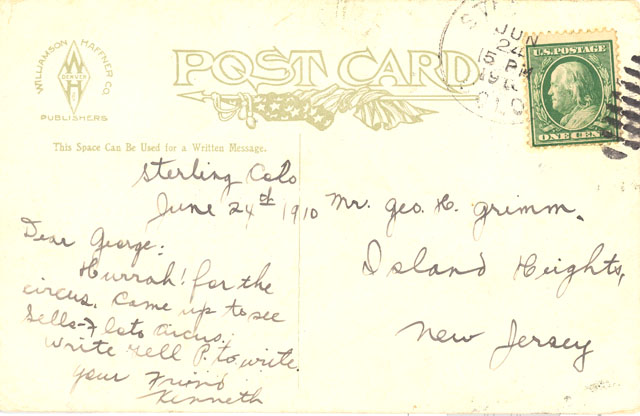 WILLIAMSON HAFFNER CO.
W
DENVER
H
PUBLISHERS
POST CARD
JUN
24
15 PM
COLO
U.S. POSTAGE
ONE CENT
This Space Can Be Used for a Written Message.
Sterling Colo
June 24th 1910
Dear George:
Hurrah! for the
circus. Came up to see
Sells-Floto Circus.
Write tell P. to write.
Your Friend
Kenneth
Mr. Geo. H. Grimm.
Island Heights,
New Jersey